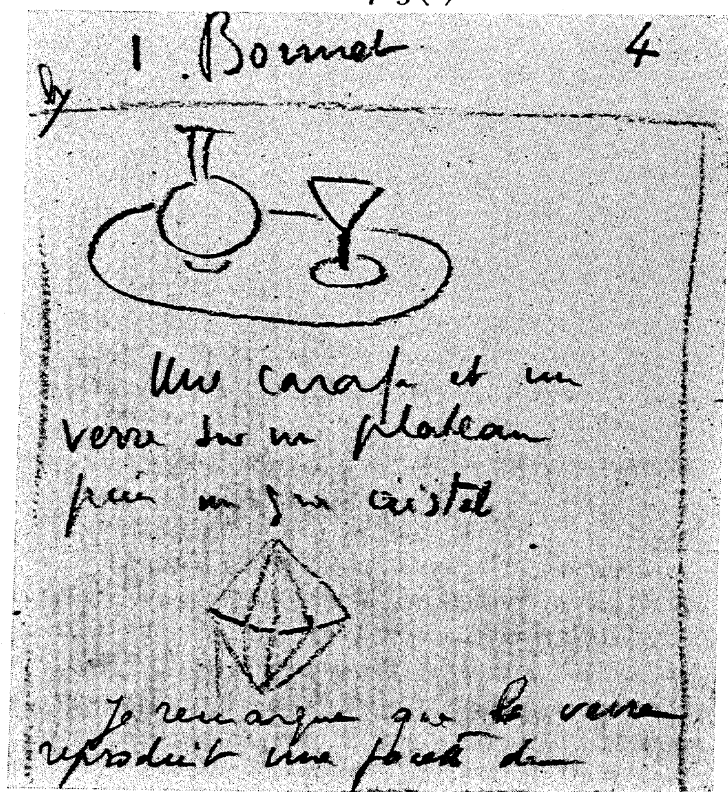 1. Bonnet 4
by
Une carafe et un
verre sur un plateau
puis un gros cristal
Je remarque que le verre
reproduit une facette du